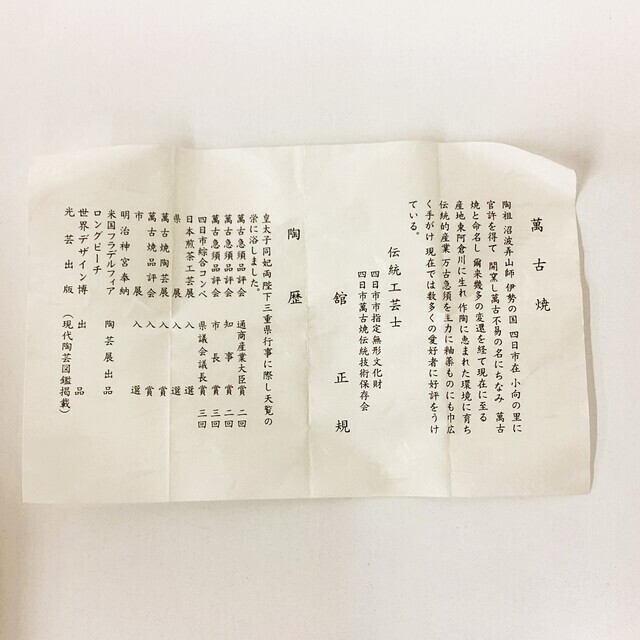 萬古焼
陶祖 沼波弄山師 伊勢の国 四日市在 小向の里に
官許を得て 開窯し萬古不易の名にちなみ 萬古
焼と命名し 爾来幾多の変還を経て現在に至る
産地東阿倉川に生れ 作陶に恵まれた環境に育ち
伝統的産業 万古急須を主力に釉薬ものにも巾広
く手がけ 現在では数多くの愛好者に好評をうけ
ている。
伝統工芸士
四日市市指定無形文化財
四日市萬古焼伝統技術保存会
舘正規
陶歴
皇太子同妃両陛下三重県行事に際し天覧の
栄に浴しました。
萬古急須品評会 通商産業大臣賞 二回
萬古急須品評会 知事賞 二回
萬古急須品評会 市長賞 三回
四日市綜合コンペ 県議会議長賞 三回
日本煎茶工芸展 入選
県展 入選
萬古焼陶芸展 入賞
萬古焼品評会 入賞
市展 入選
明治神宮奉納
米国フラデルフィア 陶芸展出品
ロングビーチ
世界デザイン博 出品
光芸出版 (現代陶芸図鑑掲載)